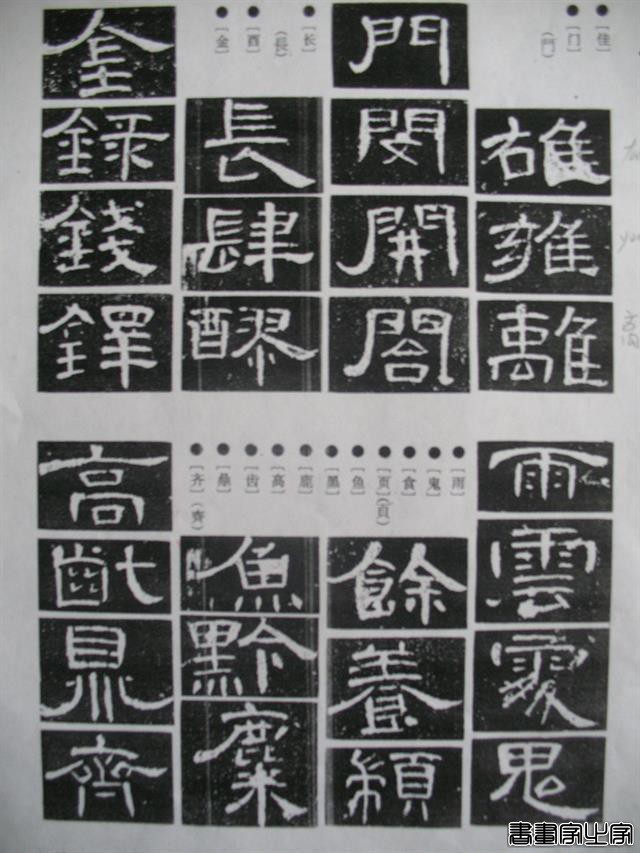 ●[佳]
●[门](門)
雄
雍
離
門
閔
開
閤
●[长](長)
●[酉]
●[金]
長
肆
醪
金
錄
錢
鐸
雨
雲
鬼
●[雨]
●[鬼]
●[食]
●[页](頁)
●[鱼]
●[黑]
●[鹿]
●[高]
●[齿]
●[鼎]
●[齐](齊)
餘
養
穎
魚
黔
麋
高
齔
鼎
齊
書畫家之家